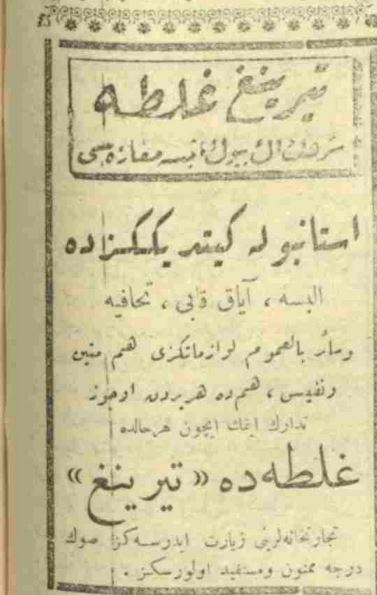 تيرينغ غلطه
شرقك اك بيوك البسه مغازه سى
استانبوله كيتديككزده
البسه ، آياق قابى ، تحافيه
وسائر بالعموم لوازماتكزى هم متين
ونفيس ، هم ده هر يردن اوجوز
تدارك ايتمك ايچون هر حالده
غلطه ده « تيرينغ »
تجارتخانه لرينى زيارت ايدرسه كز صوك
درجه ممنون ومستفيد اولورسكز .